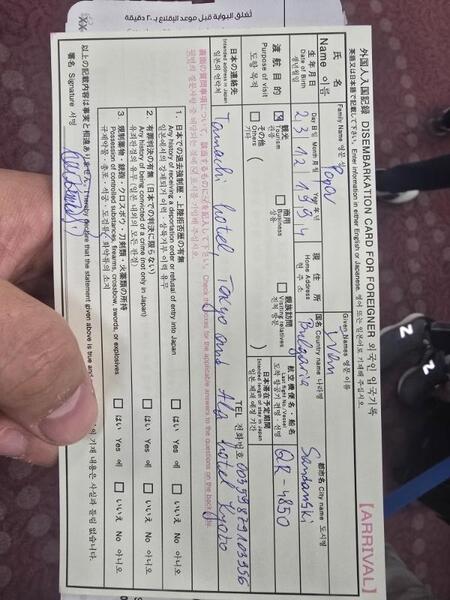 تغلق البوابة قبل موعد الإقلاع بـ ٢٠ دقيقة
外国人入国記録 DISEMBARKATION CARD FOR FOREIGNER 외국인 입국기록
[ARRIVAL]
英語又は日本語で記載して下さい。 Enter information in either English or Japanese. 영어 또는 일본어로 기재해 주십시오.
氏 名
Name 이름
Family Name 영문 성
Popov
Given Names 영문 이름
Ivan
生年月日
Date of Birth
생년월일
Day 日 일 Month 月 월 Year 年 년
23 12 1994
現 住 所
Home Address
현 주소
国名 Country name 나라명
Bulgaria
都市名 City name 도시명
Sandanski
渡航目的
Purpose of visit
도항 목적
観光
Tourism
관광
商用
Business
상용
親族訪問
Visiting relatives
친척 방문
その他
Others
기타
航空機便名・船名
Last flight No./Vessel
도착 항공기 편명・선명
QR-4850
日本滞在予定期間
Intended length of stay in Japan
일본 체재 예정 기간
日本の連絡先
Intended address in Japan
일본의 연락처
Tamachi hotel, Tokyo and Alp hotel Kyoto
TEL 전화번호
裏面の質問事項について、該当するものに✓を記入して下さい。 Check the boxes for the applicable answers to the questions on the back side.
1. 日本での退去強制歴・上陸拒否歴の有無
Any history of receiving a deportation order or refusal of entry into Japan
일본에서의 강제퇴거 이력・상륙거부 이력 유무
はい Yes 예 いいえ No 아니오
2. 有罪判決の有無(日本での判決に限らない)
Any history of being convicted of a crime (not only in Japan)
유죄판결의 유무 (일본 내외의 모든 판결)
はい Yes 예 いいえ No 아니오
3. 規制薬物・銃砲・クロスボウ・刀剣類・火薬類の所持
Possession of controlled substances, firearms, crossbow, swords, or explosives
규제약물・총포・석궁・도검류・화약류의 소지
はい Yes 예 いいえ No 아니오
以上の記載内容は事実と相違ありません。 I hereby declare that the statement given above is true and
기재 내용은 사실과 틀림 없습니다.
署名 Signature 서명